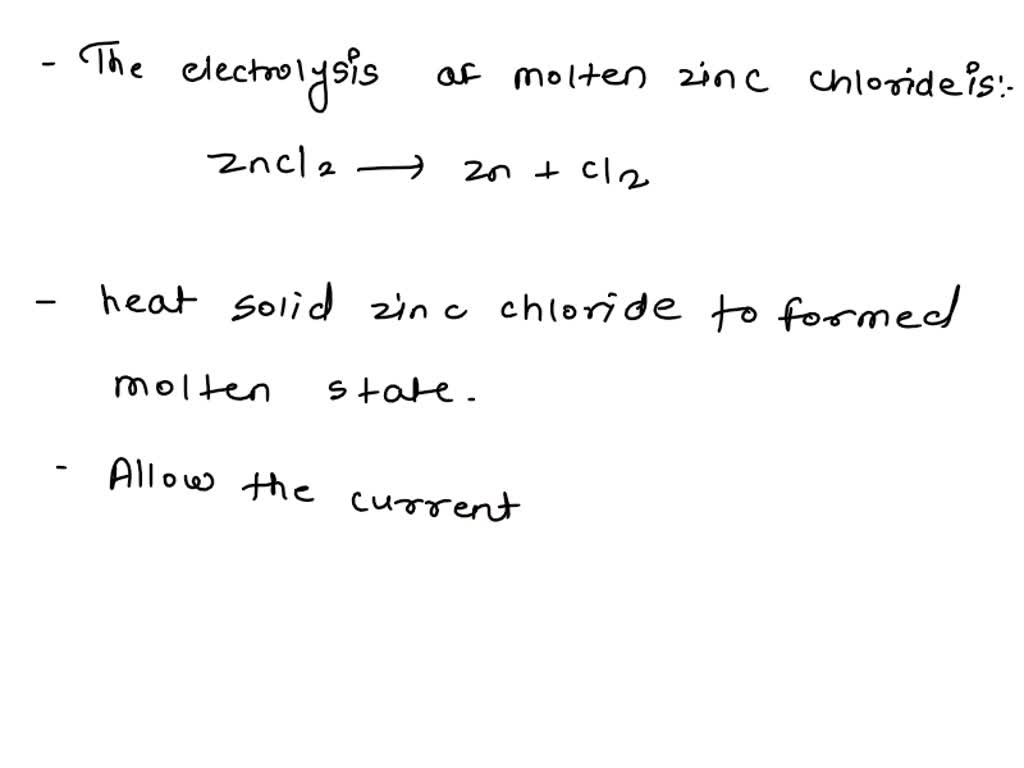 - The electrolysis of molten zinc chloride is:-
ZnCl2 → Zn + Cl2
- heat solid zinc chloride to formed
molten state.
- Allow the current